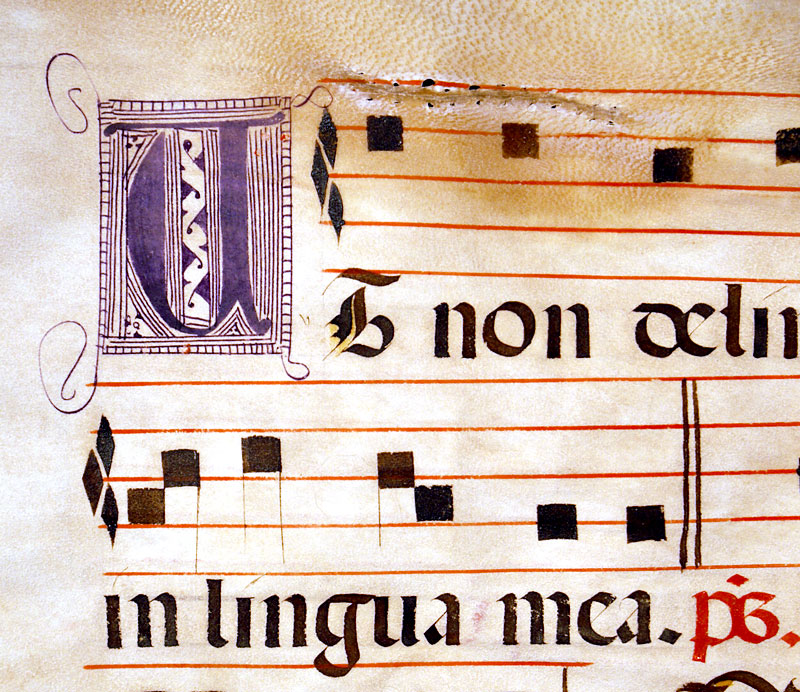 UT non delin
in lingua mea. ps.